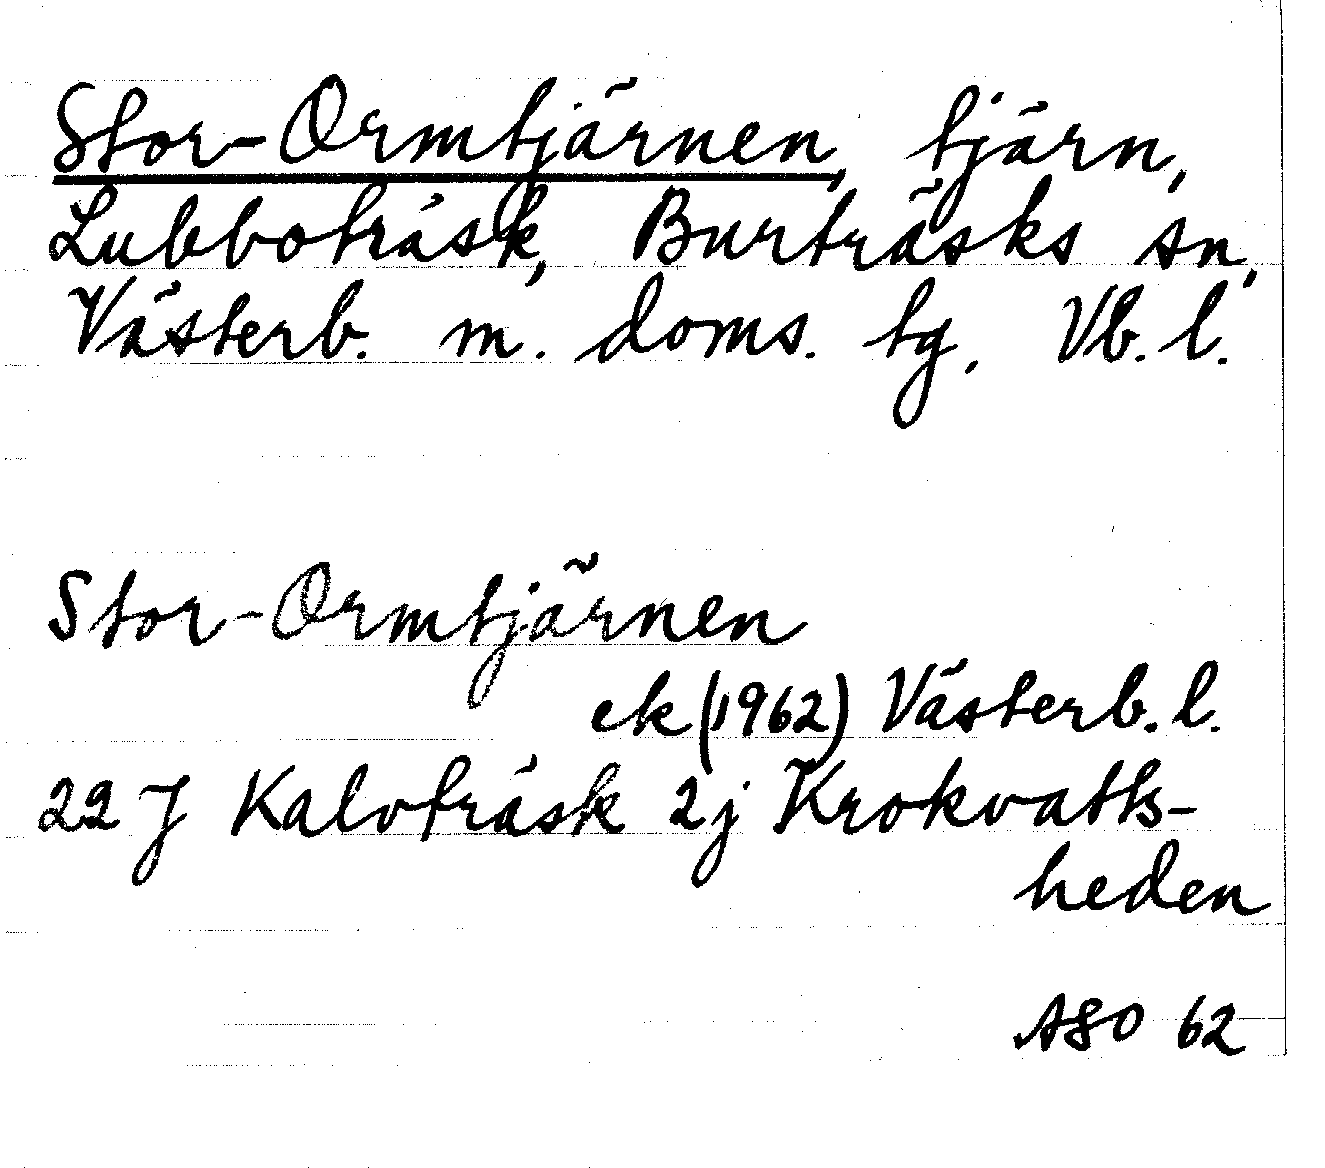 Stor-Ormtjärnen, tjärn,
Lubboträsk, Burträsks sn,
Västerb. m. doms. tg, Vb. l.
Stor-Ormtjärnen
ek (1962) Västerb. l.
22 J Kalvträsk 2j Krokvatts-
heden
ASO 62